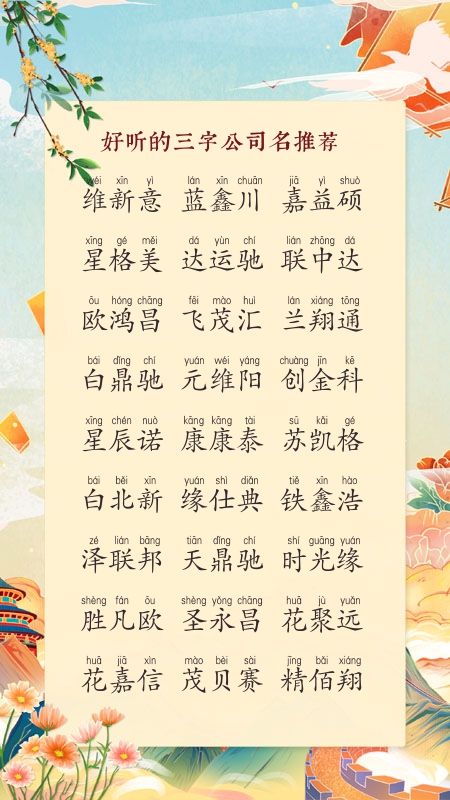 好听的三字公司名推荐
wéi xīn yì lán xīn chuān jiā yì shuò
维新意 蓝鑫川 嘉益硕
xīng gé měi dá yùn chí lián zhōng dá
星格美 达运驰 联中达
ōu hóng chāng fēi mào huì lán xiáng tōng
欧鸿昌 飞茂汇 兰翔通
bái dǐng chí yuán wéi yáng chuàng jīn kē
白鼎驰 元维阳 创金科
xīng chén nuò kāng kāng tài sū kǎi gé
星辰诺 康康泰 苏凯格
bái běi xīn yuán shì diǎn tiě xīn hào
白北新 缘仕典 铁鑫浩
zé lián bāng tiān dǐng chí shí guāng yuán
泽联邦 天鼎驰 时光缘
shèng fán ōu shèng yǒng chāng huā jù yuǎn
胜凡欧 圣永昌 花聚远
huā jiā xìn mào bèi sài jīng bǎi xiáng
花嘉信 茂贝赛 精佰翔